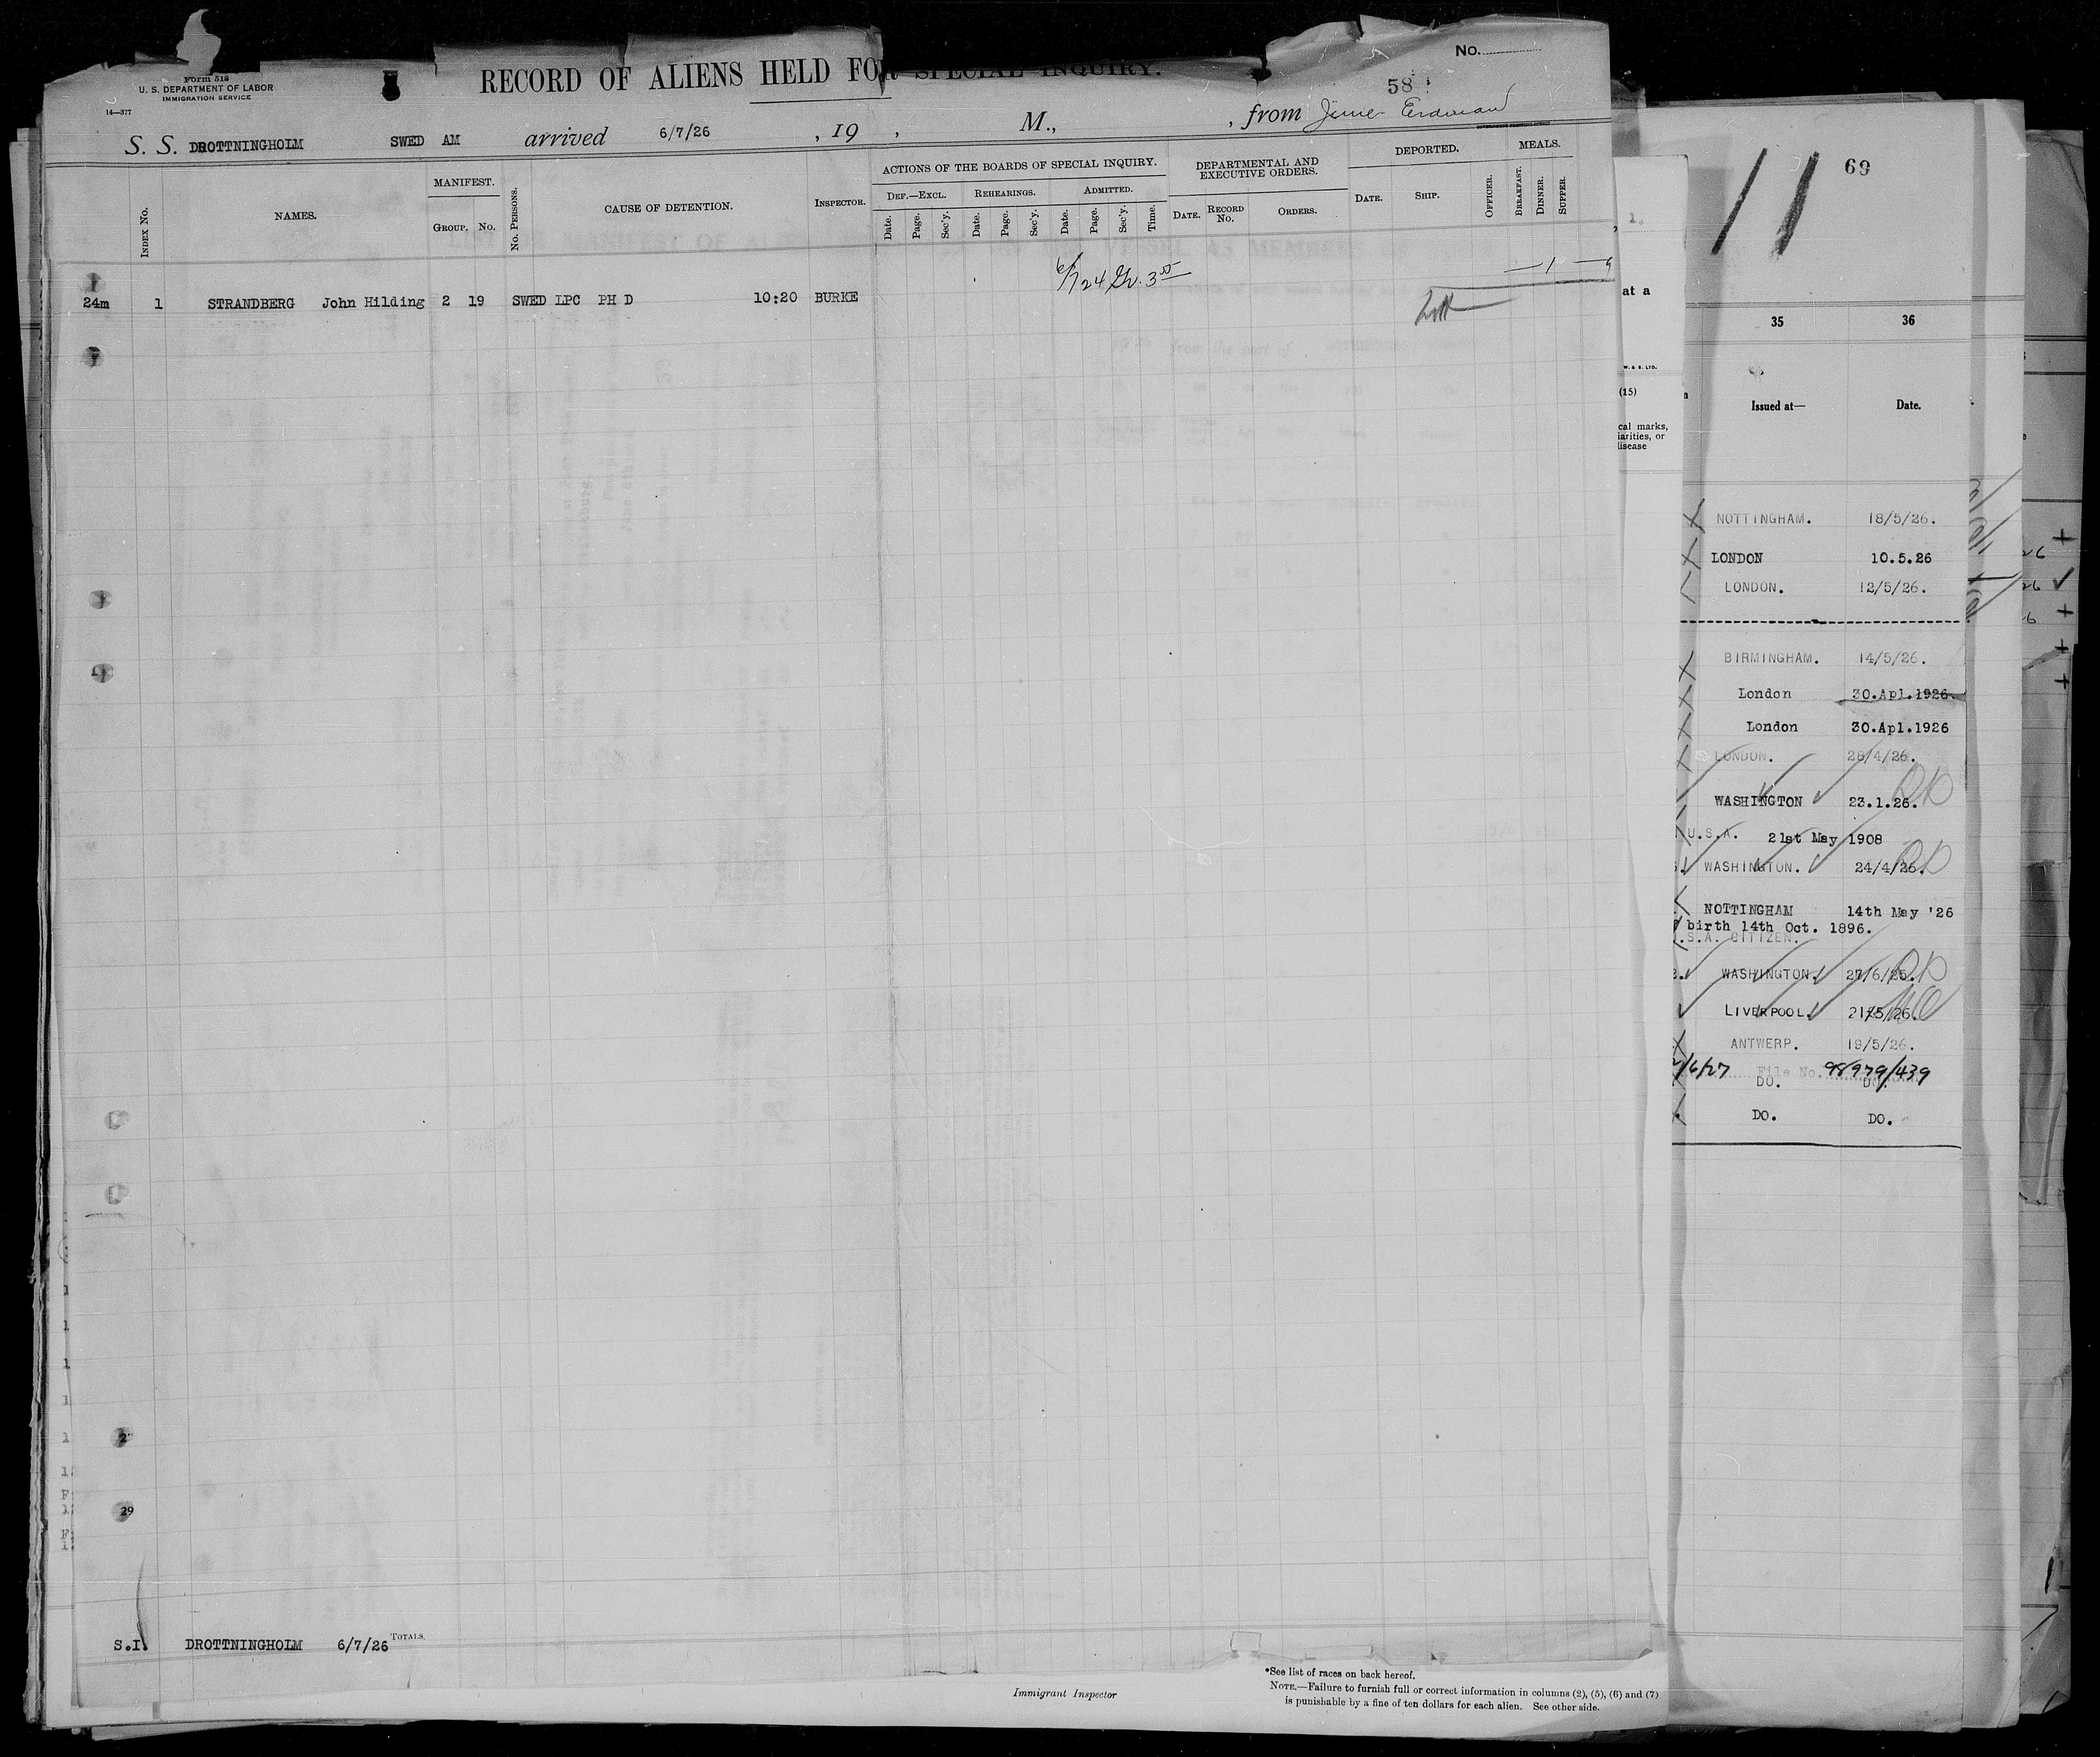 No.
Form 518
U. S. DEPARTMENT OF LABOR
IMMIGRATION SERVICE
14—377
RECORD OF ALIENS HELD FOR SPECIAL INQUIRY.
58
S. S. DROTTNINGHOLM SWED AM arrived 6/7/26 , 19 , M., , from
INDEX No.
NAMES.
MANIFEST.
GROUP. No.
No. PERSONS.
CAUSE OF DETENTION.
INSPECTOR.
ACTIONS OF THE BOARDS OF SPECIAL INQUIRY.
DEF.—EXCL. REHEARINGS. ADMITTED.
Date. Page. Sec'y. Date. Page. Sec'y. Date. Page. Sec'y. Time.
DEPARTMENTAL AND
EXECUTIVE ORDERS.
DATE. RECORD No. ORDERS.
DEPORTED.
DATE. SHIP. OFFICER.
MEALS.
BREAKFAST. DINNER. SUPPER.
24m 1 STRANDBERG John Hilding 2 19 SWED LPC PH D 10:20 BURKE
2
29
S.I. DROTTNINGHOLM 6/7/26 TOTALS.
Immigrant Inspector
*See list of races on back hereof.
NOTE.—Failure to furnish full or correct information in columns (2), (5), (6) and (7)
is punishable by a fine of ten dollars for each alien. See other side.
at a
W. & S. LTD.
(15)
cal marks,
iarities, or
disease
11
69
35 36
Issued at— Date.
NOTTINGHAM. 18/5/26.
LONDON 10.5.26
LONDON. 12/5/26.
BIRMINGHAM. 14/5/26.
London 30.Apl.1926
London 30.Apl.1926
LONDON. 26/4/26.
WASHINGTON 23.1.26.
U.S.A. 21st May 1908
WASHINGTON. 24/4/26.
NOTTINGHAM 14th May '26
birth 14th Oct. 1896.
.S.A. CITIZEN.
WASHINGTON. 27/6/25.
LIVERPOOL. 21/5/26.
ANTWERP. 19/5/26.
/6/27 File No. 98979/439
DO. DO.
DO. DO.